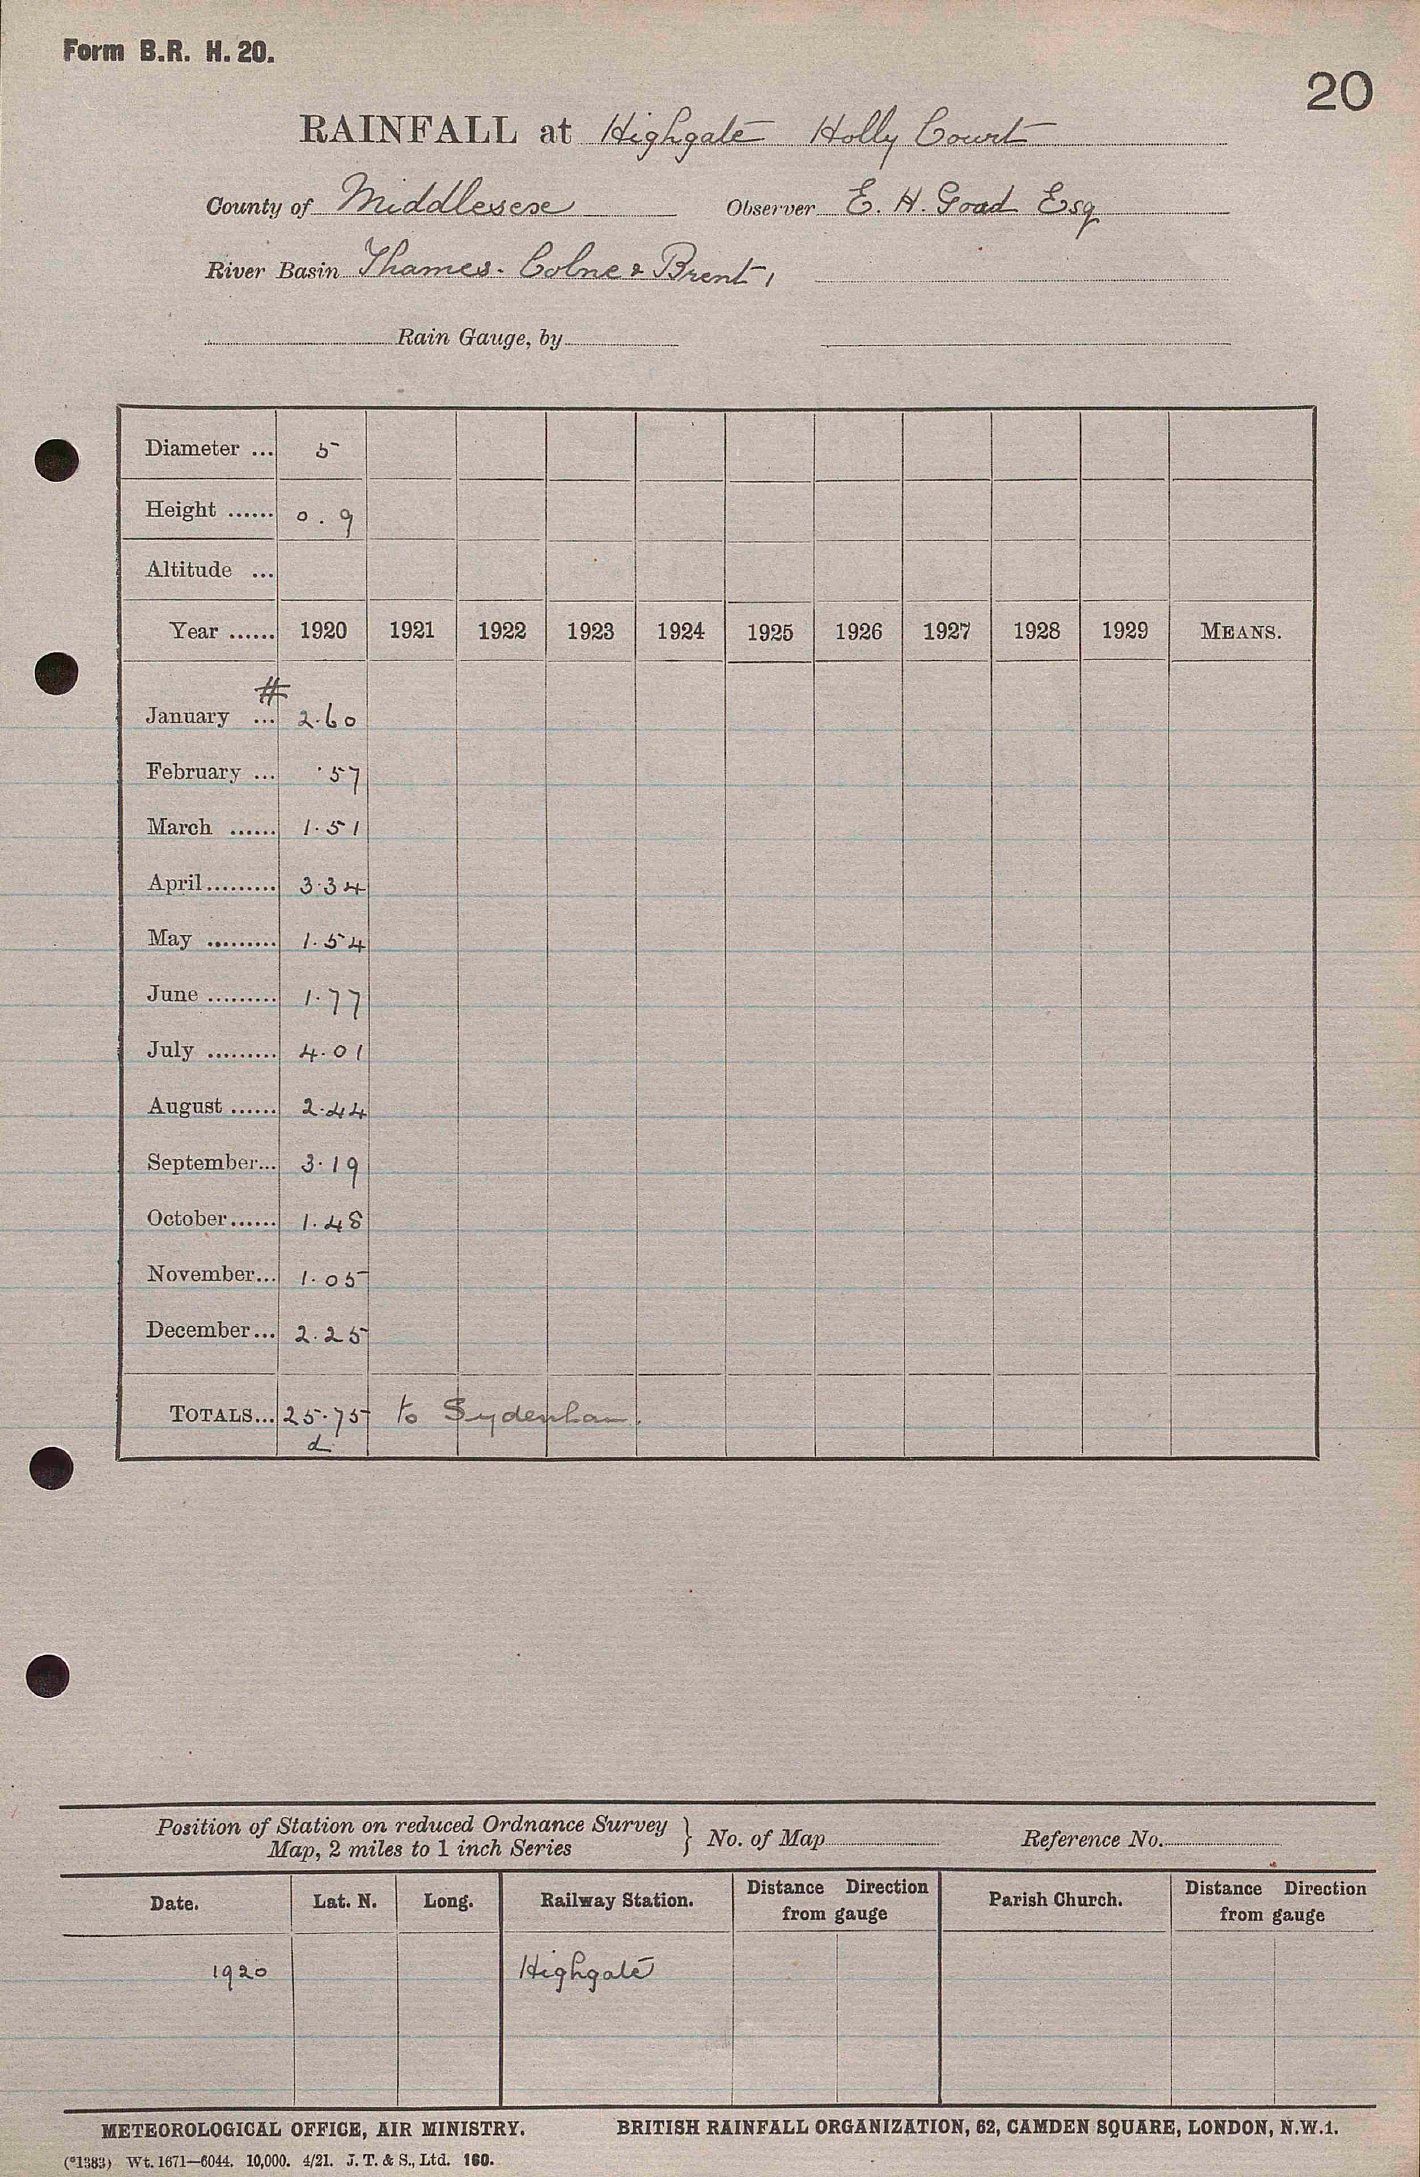 Form B.R. H. 20.
20
RAINFALL at Highgate Holly Court
County of Middlesex Observer E. H. Goad Esq
River Basin Thames. Colne & Brent,
Rain Gauge, by
Diameter ... 5
Height ...... 0.9
Altitude ...
Year ...... 1920 1921 1922 1923 1924 1925 1926 1927 1928 1929 MEANS.
#
January ... 2.60
February ... .57
March ...... 1.51
April ......... 3.34
May ......... 1.54
June ......... 1.77
July ......... 4.01
August ...... 2.44
September... 3.19
October...... 1.48
November... 1.05
December... 2.25
TOTALS... 25.75 to Sydenham.
d
Position of Station on reduced Ordnance Survey
Map, 2 miles to 1 inch Series } No. of Map Reference No.
Date. Lat. N. Long. Railway Station. Distance Direction from gauge Parish Church. Distance Direction from gauge
1920 Highgate
METEOROLOGICAL OFFICE, AIR MINISTRY. BRITISH RAINFALL ORGANIZATION, 62, CAMDEN SQUARE, LONDON, N.W.1.
(*1383) Wt. 1671—6044. 10,000. 4/21. J. T. & S., Ltd. 160.